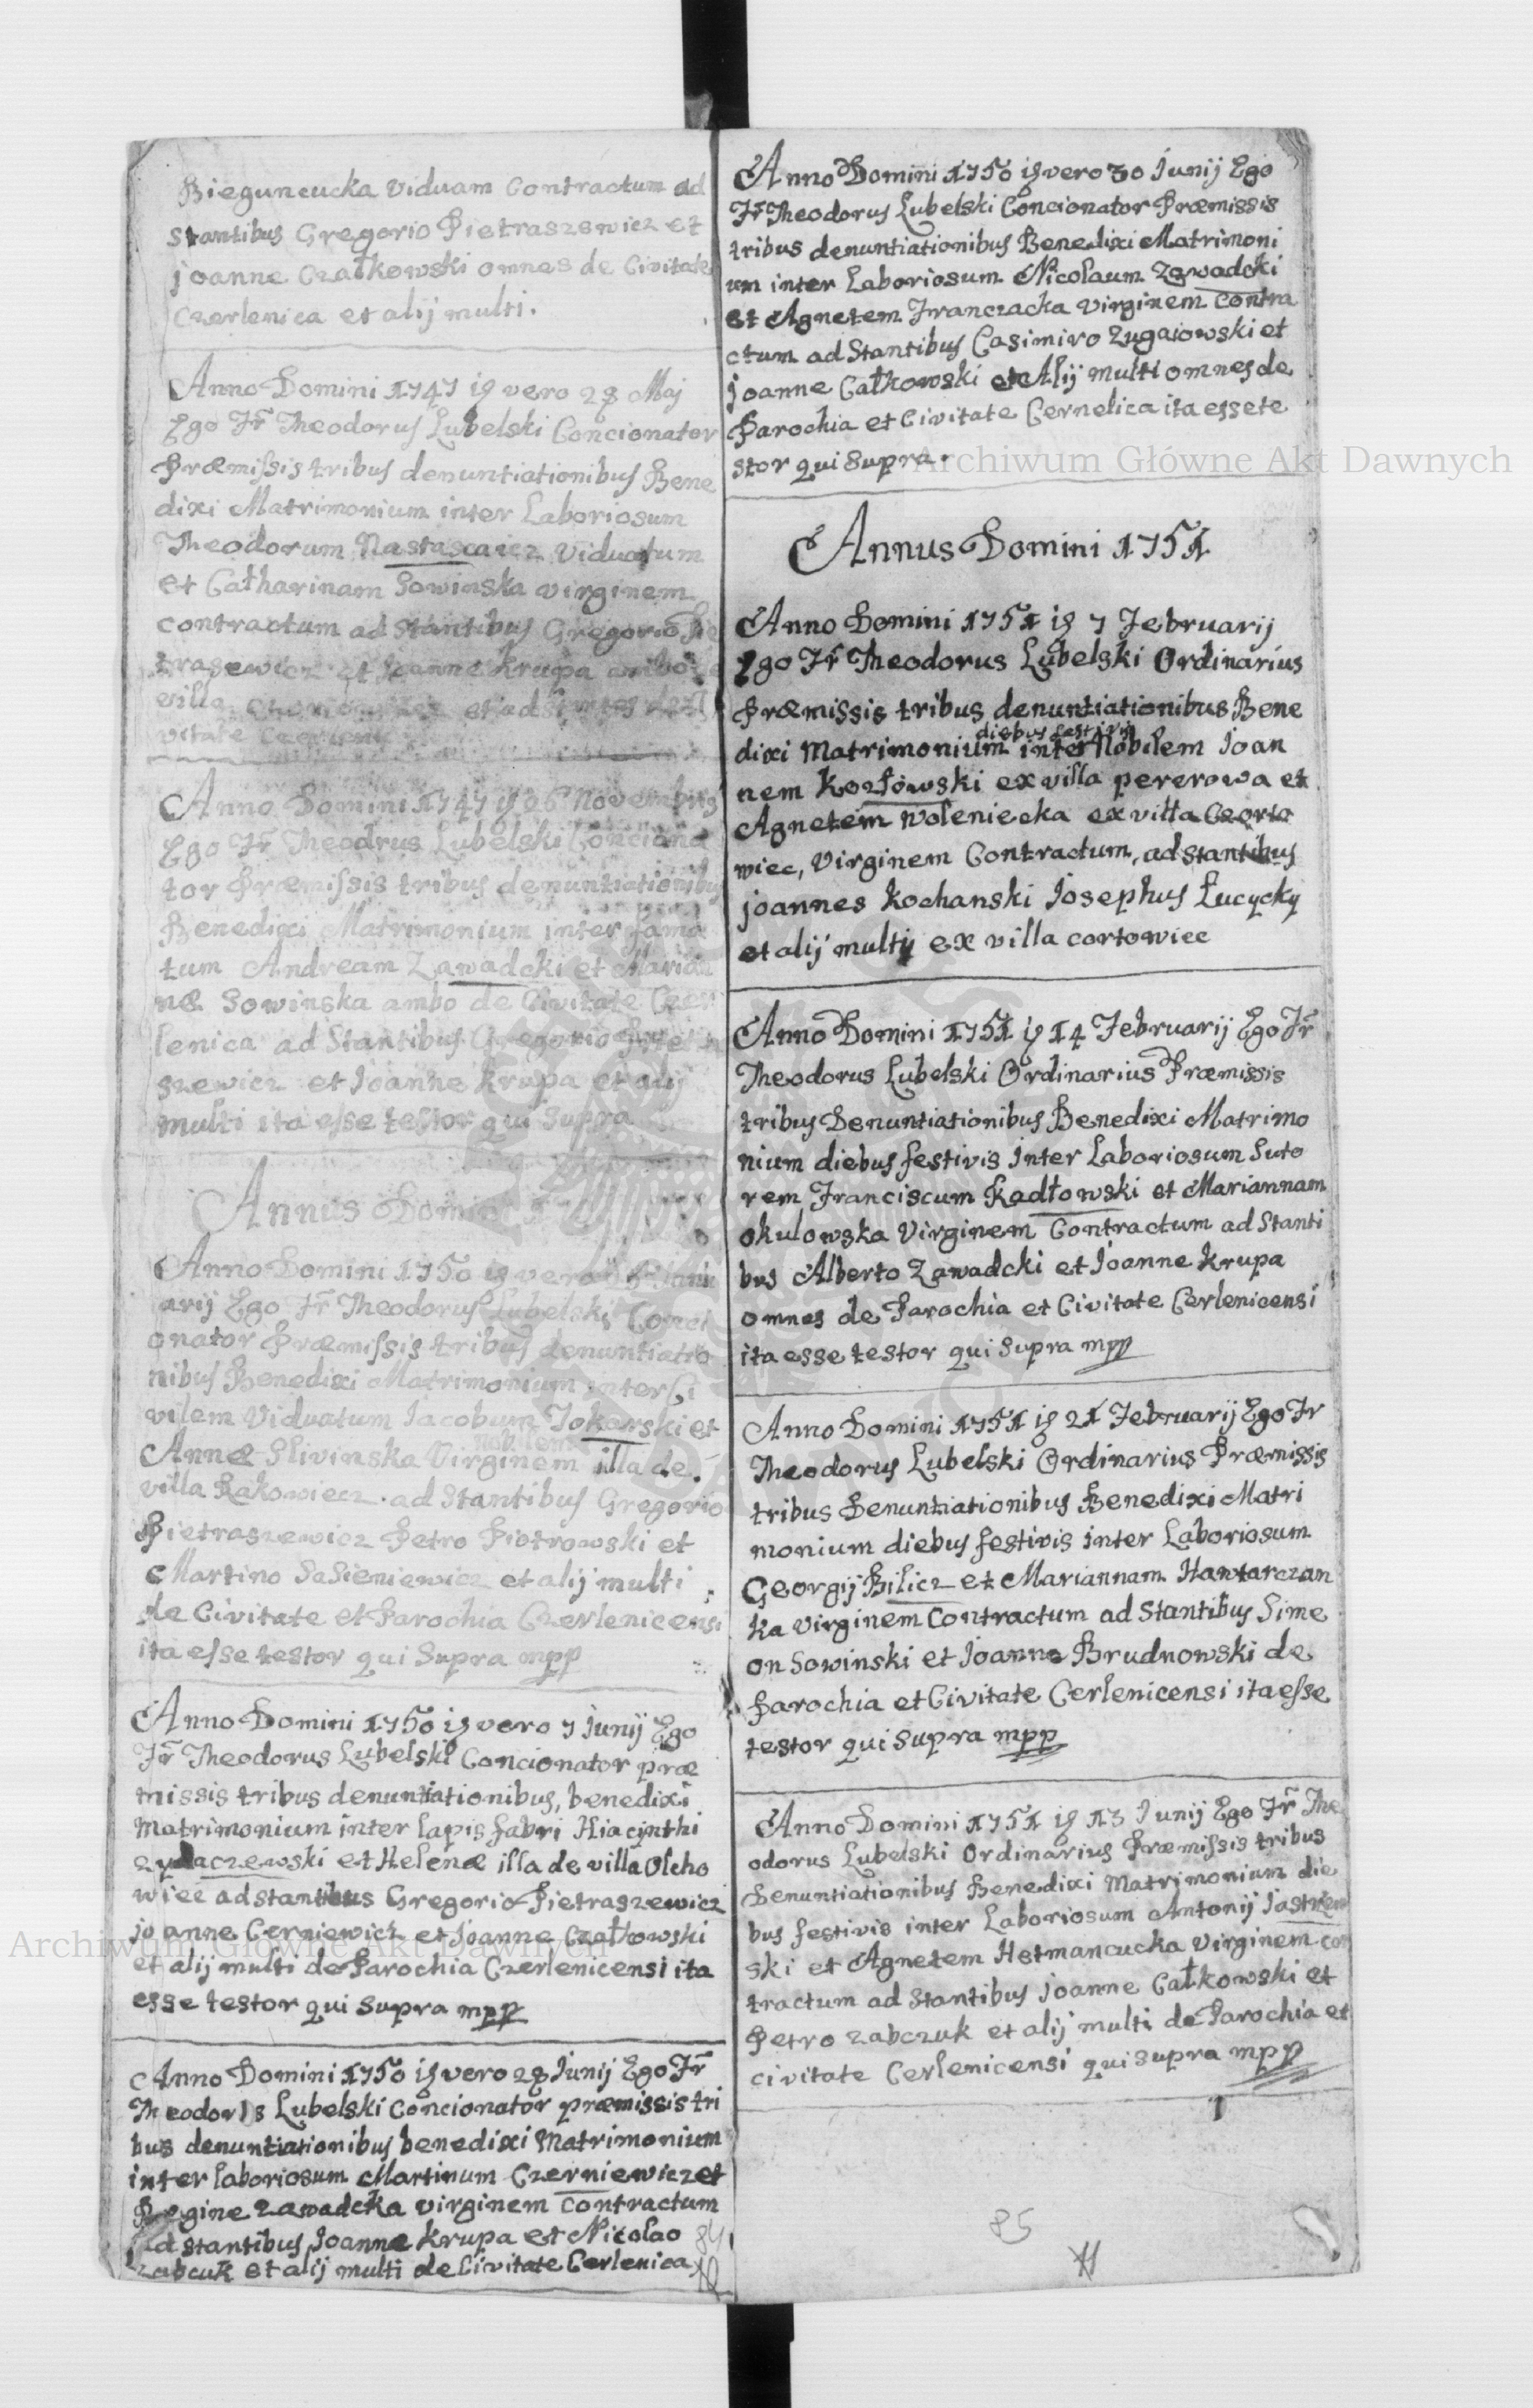 Bieguncucka Viduam Contractum ad
stantibus Gregorio Pietraszewicz et
joanne Czałkowski omnes de Civitate
Czerlenica et alij multi.
Anno Domini 1747 is vero 28 Maj
Ego Fr Theodorus Lubelski Concionator
Præmissis tribus denuntiationibus Bene
dixi Matrimonium inter Laboriosum
Theodorum Nastascaicz Viduatum
et Catharinam Sowinska virginem
contractum ad stantibus Gregorio Pie
trasewicz et Joanne Krupa ambo
villa et
vitate
Anno Domini 1747 is 26 Novembris
Ego Fr Theodrus Lubelski Conciona
tor Præmissis tribus denuntiationibus
Benedixi Matrimonium inter fama
tum Andream Zawadcki et Marian
næ Sowinska ambo de Civitate Czer
lenica ad Stantibus Gregorio
szewicz et Joanne Krupa et alij
multi ita esse testor qui supra
Annus Domini
Anno Domini 1750 is vero Janu
arij Ego Fr Theodorus Lubelski Conci
onator Præmissis tribus denuntiatio
nibus Benedixi Matrimonium inter Ci
vilem Viduatum Jacobum Tokarski et
Annæ Slivinska nobilem Virginem illa de
villa Rakowiecz ad Stantibus Gregorio
Pietraszewicz Petro Piotrowski et
Martino Sasieniewicz et alij multi
de Civitate et Parochia Czerlenicensi
ita esse testor qui Supra mpp
Anno Domini 1750 is vero 7 Junij Ego
Fr Theodorus Lubelski Concionator præ
missis tribus denuntiationibus, benedixi
Matrimonium inter lapis fabri Hiacÿnthi
zydaczewski et Helenæ illa de villa Olcho
wiec adstantibus Gregorio Pietraszewicz
joanne Cerniewicz et Joanne Czałkowski
et alij multi de Parochia Czerlenicensi ita
esse testor qui supra mpp
Anno Domini 1750 is vero 28 Junij Ego Fr
Theodorus Lubelski Concionator præmissis tri
bus denuntiationibus benedixi Matrimonium
inter laboriosum Martinum Czerniewicz et
Regine Zawadcka virginem contractum
ad stantibus Joanne Krupa et Nicolao
Zabcuk et alij multi de Civitate Cerlenica
84
Anno Domini 1750 is vero 30 Junij Ego
Fr Theodorus Lubelski Concionator Præmissis
tribus denuntiationibus Benedixi Matrimoni
um inter Laboriosum Nicolaum Zawadcki
et Agnetem Iwanczacka virginem contra
ctum ad Stantibus Casimiro Zugaiowski et
joanne Całkowski et Alij multi omnes de
Parochia et Civitate Cernelica ita esse te
stor qui Supra.
Annus Domini 1751
Anno Domini 1751 is 7 Februarij
Ego Fr Theodorus Lubelski Ordinarius
Præmissis tribus denuntiationibus Bene
diebus festivis
dixi Matrimonium inter Nobilem Joan
nem Kozłowski ex villa pererowa et
Agnetem Woleniecka ex villa Ceorto
wiec, Virginem Contractum, adstantibus
joannes Kochanski Josephus Łucycky
et alij multij ex villa cortowiec
Anno Domini 1751 is 14 Februarij Ego Fr
Theodorus Lubelski Ordinarius Præmissis
tribus Denuntiationibus Benedixi Matrimo
nium diebus festivis inter Laboriosum Suto
rem Franciscum Radłowski et Mariannam
okulowska Virginem Contractum ad Stanti
bus Alberto Zawadcki et Joanne Krupa
omnes de Parochia et Civitate Cerlenicensi
ita esse testor qui Supra mpp
Anno Domini 1751 is 21 Februarij Ego Fr
Theodorus Lubelski Ordinarius Præmissis
tribus Denuntiationibus Benedixi Matri
monium diebus festivis inter Laboriosum
Georgij Bilicz et Mariannam Hawtarczan
ka virginem Contractum ad Stantibus Sime
on Sowinski et Joanne Brudnowski de
Parochia et Civitate Cerlenicensi ita esse
testor qui supra mpp
Anno Domini 1751 is 13 Junij Ego Fr The
odorus Lubelski Ordinarius Præmissis tribus
Denuntiationibus Benedixi Matrimonium die
bus festivis inter Laboriosum Antonij Jastrem
ski et Agnetem Hetmancucka virginem con
tractum ad Stantibus joanne Całkowski et
Petro Zabczuk et alij multi de Parochia et
civitate Cerlenicensi qui supra mpp
85
Archiwum Główne Akt Dawnych
Archiwum Główne Akt Dawnych